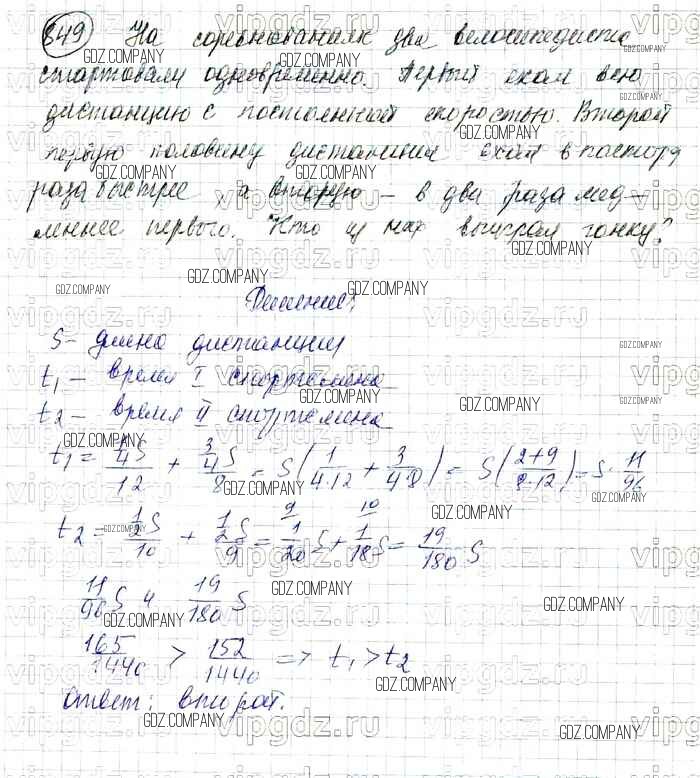 849 На соревнованиях два велосипедиста
стартовали одновременно. Первый ехал всю
дистанцию с постоянной скоростью. Второй
первую половину дистанции ехал в полтора
раза быстрее, а вторую – в два раза мед-
леннее первого. Кто из них выиграл гонку?
Решение:
S – длина дистанции
t₁ – время I спортсмена
t₂ – время II спортсмена
t₁ = (1/4 S)/12 + (3/4 S)/8 = S(1/(4·12) + 3/(4·8)) = S((2+9)/(8·12)) = S · 11/96
t₂ = (1/2 S)/10 + (1/2 S)/9 = 1/20 S + 1/18 S = 19/180 S
11/96 S и 19/180 S
165/1440 > 152/1440 => t₁ > t₂
Ответ: второй.
GDZ.COMPANY
vipgdz.ru